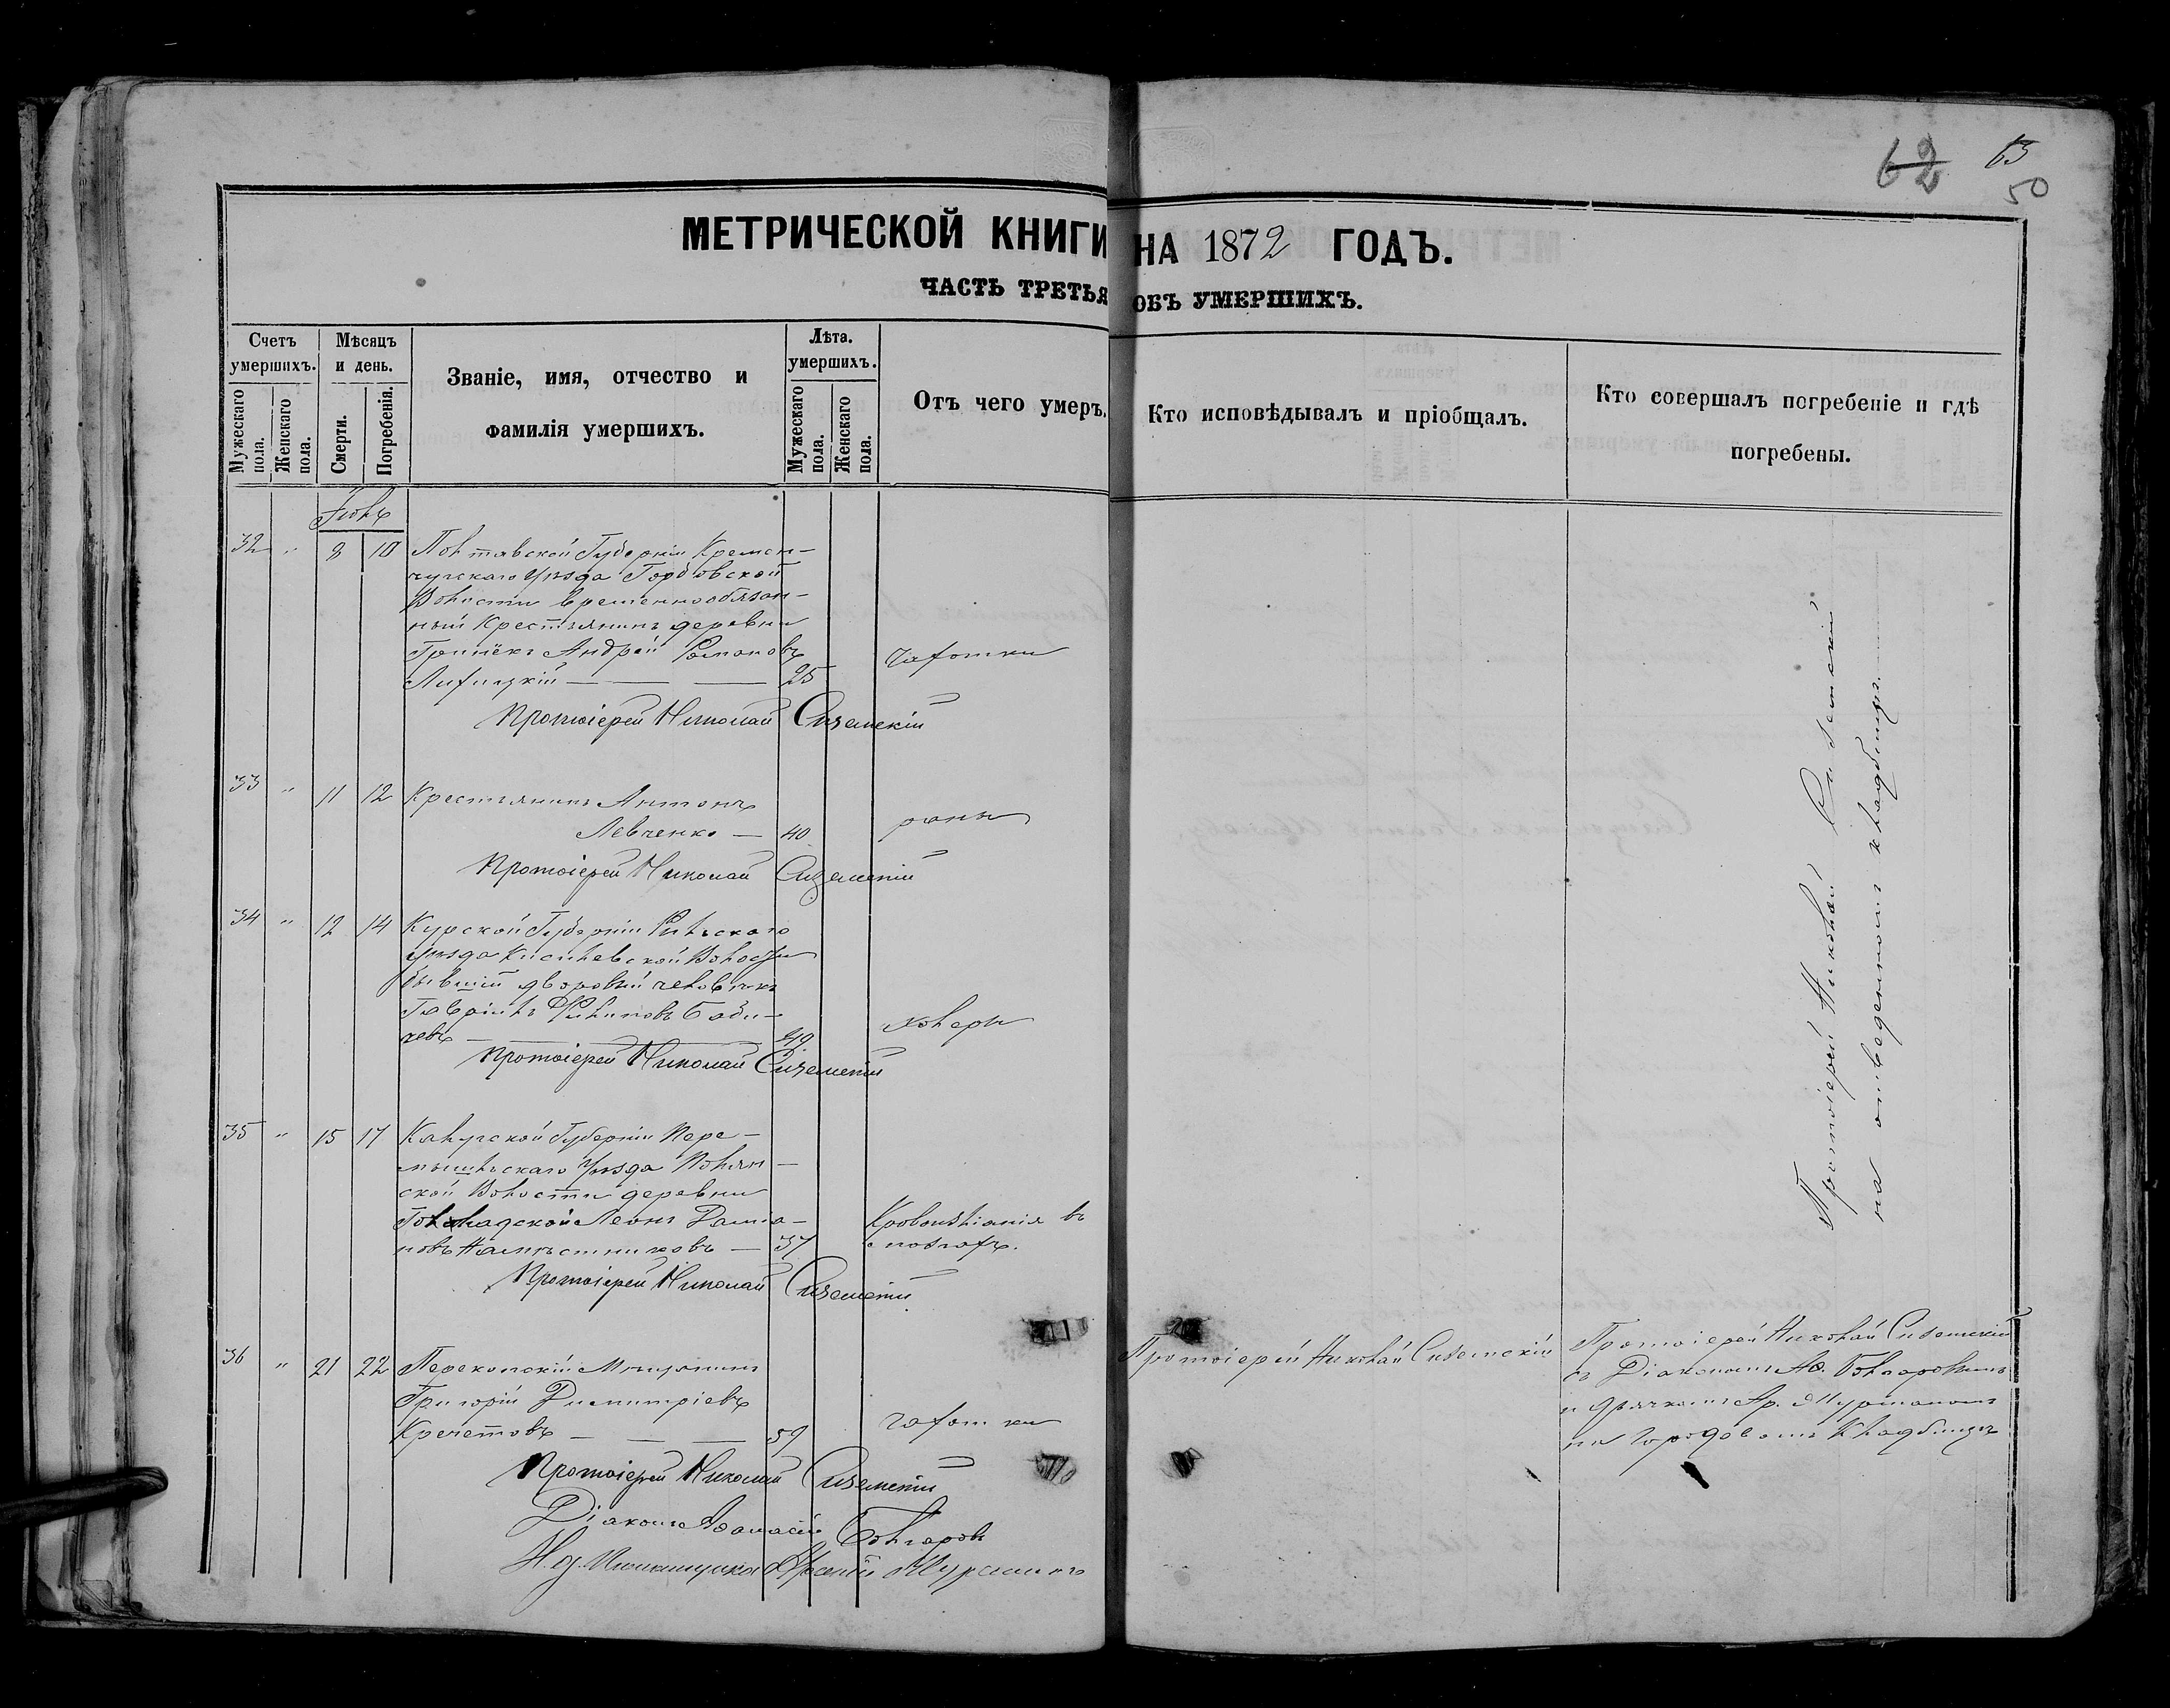 62 63
50
МЕТРИЧЕСКОЙ КНИГИ НА 1872 ГОДЪ.
ЧАСТЬ ТРЕТЬЯ ОБЪ УМЕРШИХЪ.
Счетъ умершихъ.
Мужескаго пола.
Женскаго пола.
Мѣсяцъ и день.
Смерти.
Погребенія.
Званіе, имя, отчество и
фамилія умершихъ.
Лѣта. умершихъ.
Мужескаго пола.
Женскаго пола.
Отъ чего умеръ.
Кто исповѣдывалъ и пріобщалъ.
Кто совершалъ погребеніе и гдѣ
погребены.
Іюнь
32 " 8 10 Полтавской Губерніи Кремен-
чугскаго Уѣзда
Волости временнообязан-
ный Крестьянинъ деревни
Андрей Романовъ чахотки
25
Протоіерей Николай Сиземскій
33 " 11 12 Крестьянинъ Антонъ
Левченко — 40 раны
Протоіерей Николай Сиземскій
34 " 12 14 Курской Губерніи Рыльскаго
Уѣзда Волости
бывшій дворовый человѣкъ
Гавріилъ Филиповъ Бады-
чевъ — 49 холеры
Протоіерей Николай Сиземскій
35 " 15 17 Калужской Губерніи Пере-
мышльскаго Уѣзда Полян-
ской Волости деревни
Леонъ Даміа- Кровоизліянія въ
новъ Намѣстниковъ — 37
Протоіерей Николай Сиземскій
36 " 21 22 Перекопскій Мѣщанинъ
Григорій Димитріевъ
Кречетовъ — — — 59 чахотки
Протоіерей Николай Сиземскій
Діаконъ Аѳанасій Болгаровъ
И. д.
Протоіерей Николай Сиземскій
на отведенномъ кладбищѣ.
Протоіерей Николай Сиземскій
Протоіерей Николай Сиземскій
съ Діакономъ Аѳ. Болгаровымъ
и дьячкомъ Ар.
на городовомъ кладбищѣ